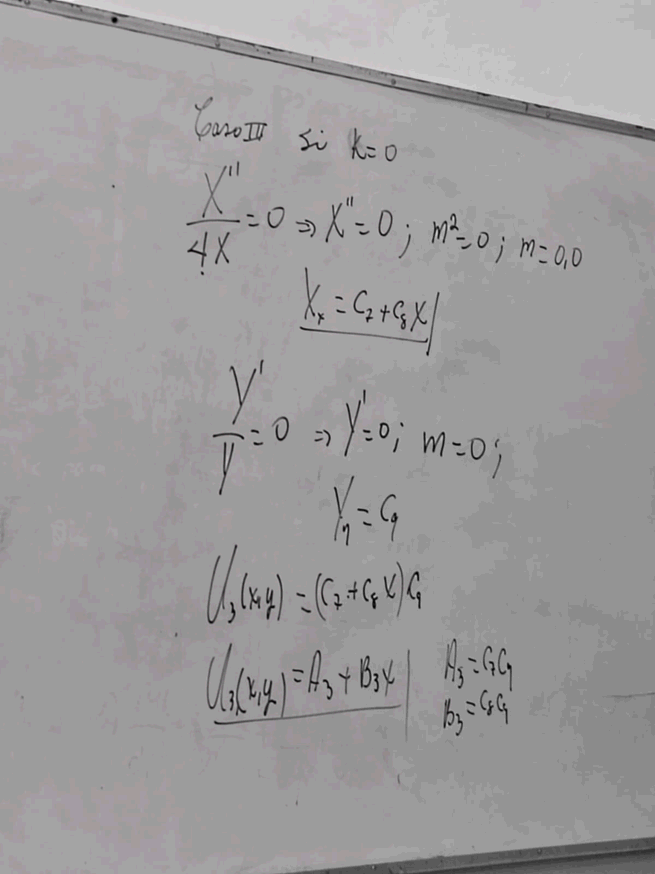 Caso III si k=0
X''/4X = 0 ⇒ X'' = 0; m²=0; m=0,0
Xₓ = C₇ + C₈X
Y'/Y = 0 ⇒ Y'=0; m=0;
Yy = C₉
U₃(x,y) = (C₇ + C₈X)C₉
U₃(x,y) = A₃ + B₃X A₃ = C₇C₉
B₃ = C₈C₉